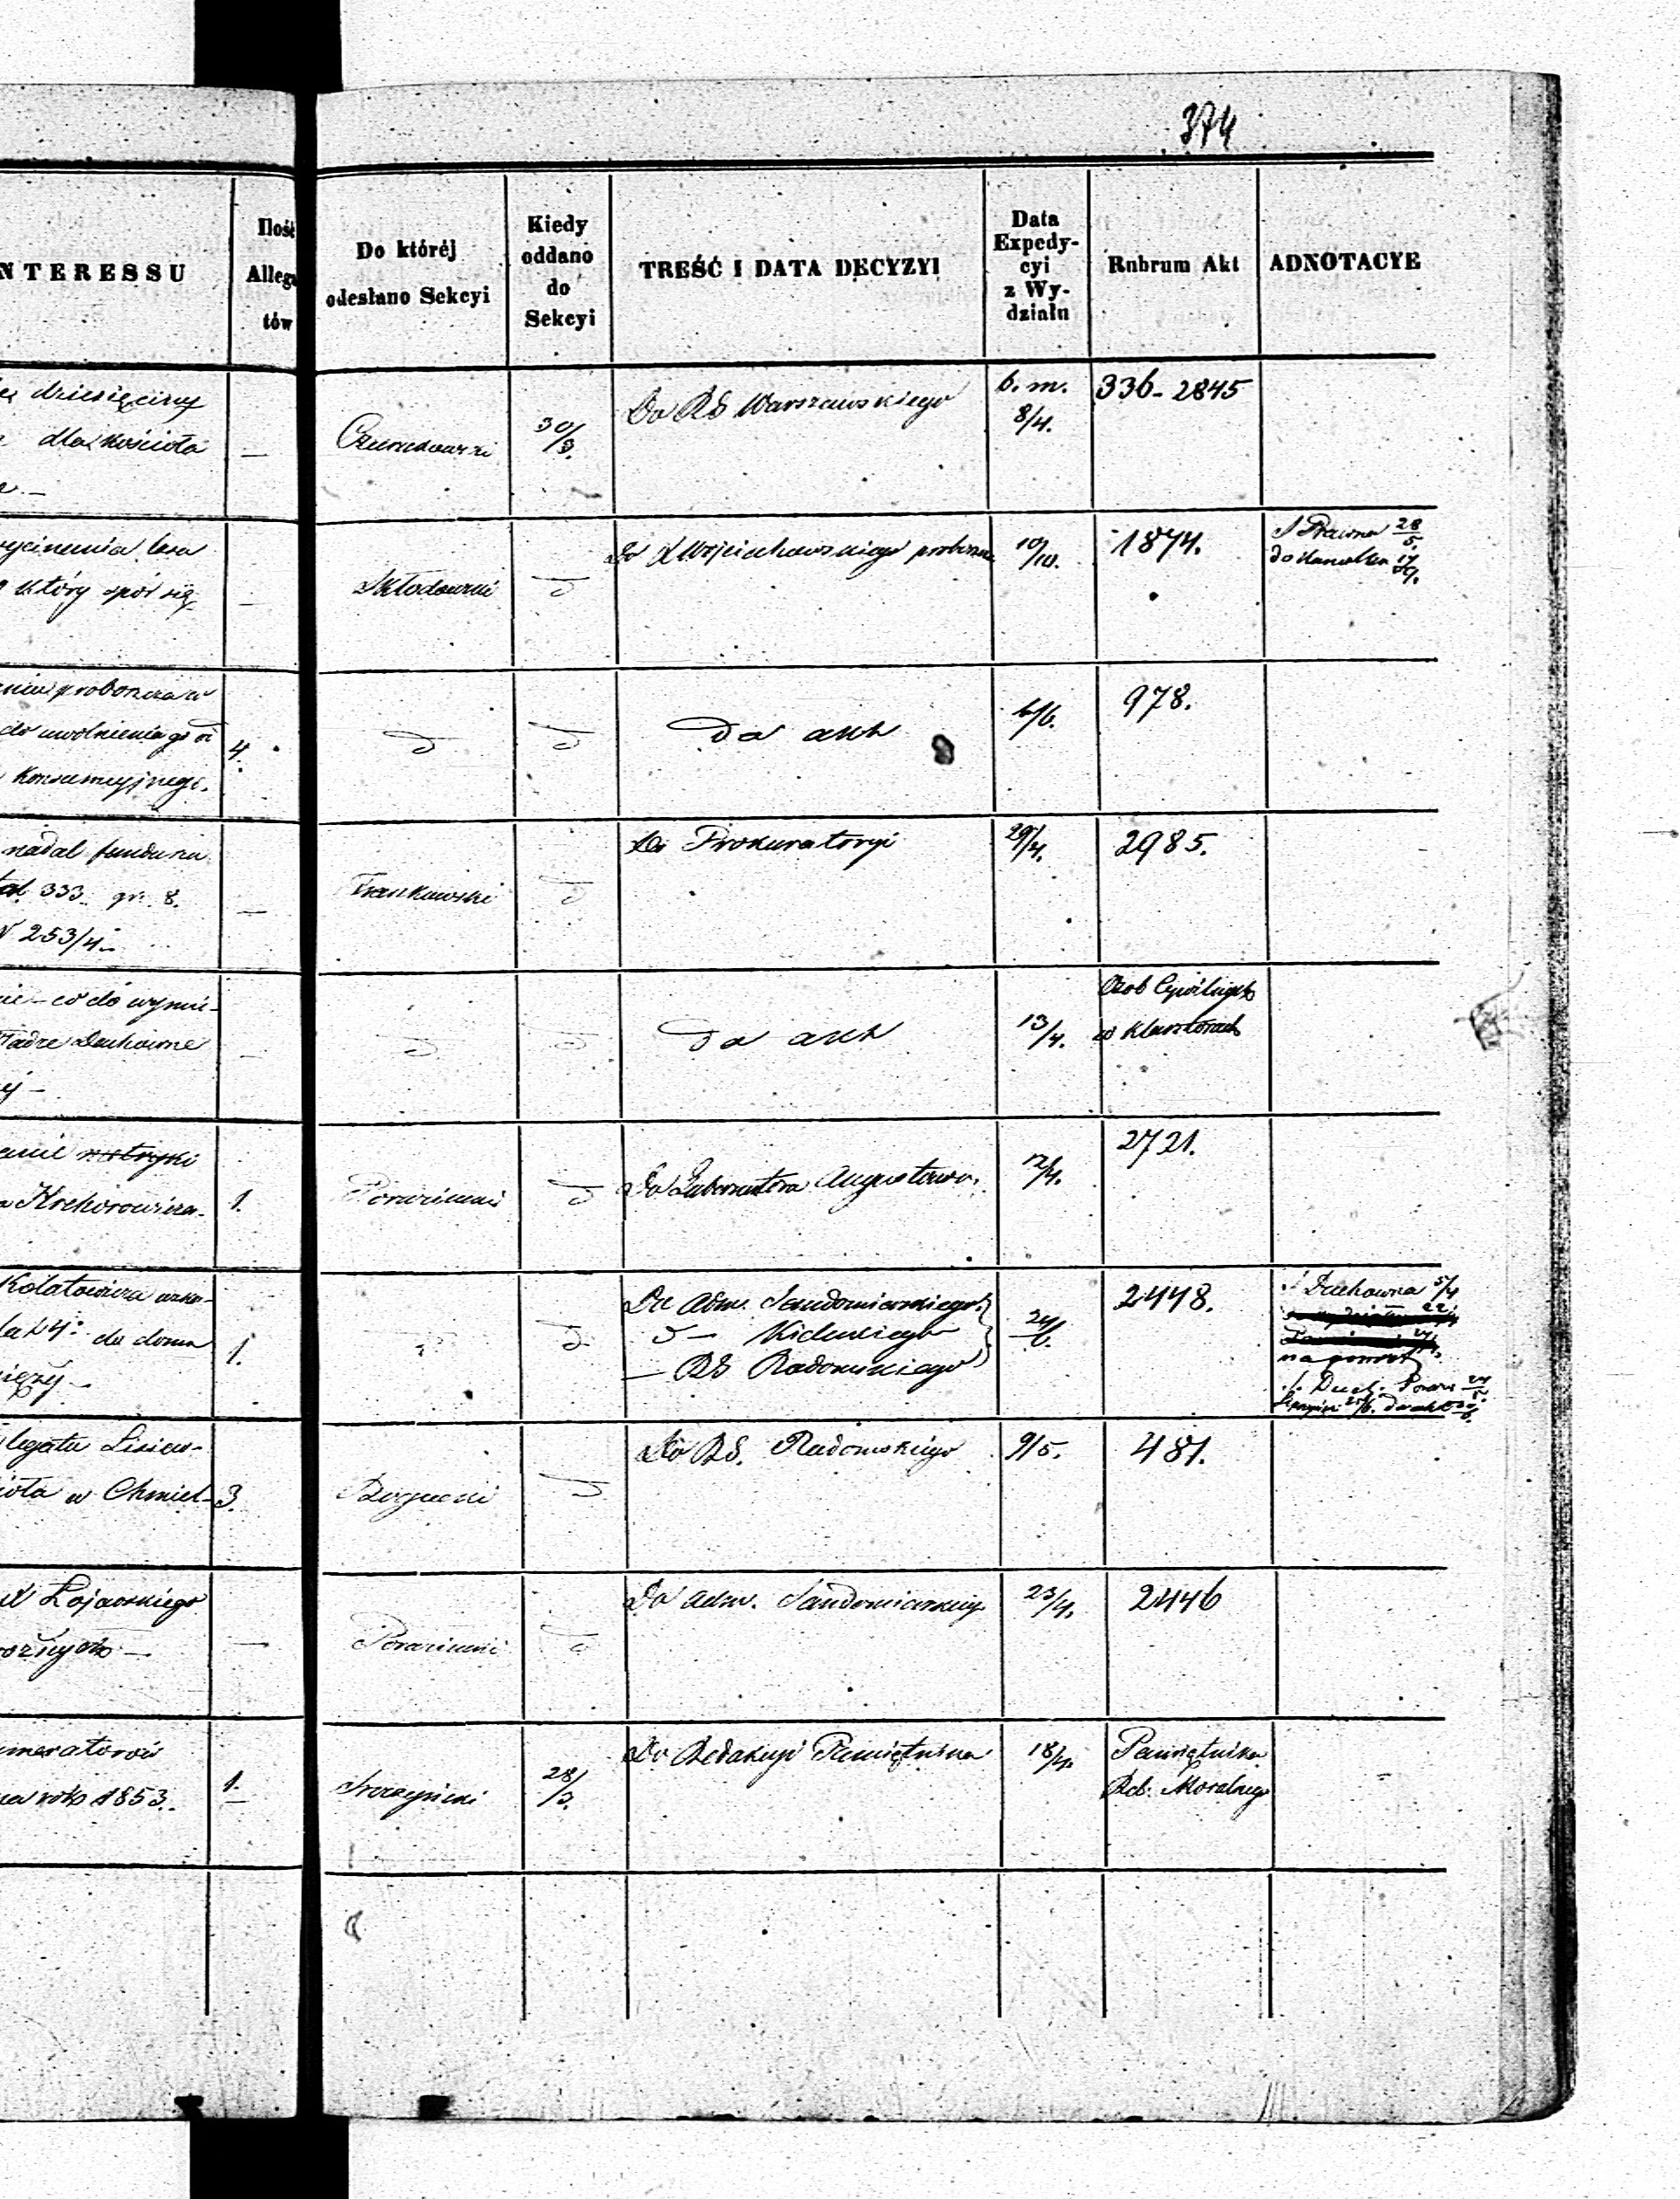 374
NTERESSU
Ilość
Allega
tów
Do któréj
odesłano Sekcyi
Kiedy
oddano
do
Sekcyi
TREŚĆ I DATA DECYZYI
Data
Expedy-
cyi
z Wy-
działu
Rubrum Akt
ADNOTACYE
dziesięciny
dla kościoła
—
30/3.
Do RG Warszawskiego
b. m.
8/4.
336-2845
lasu
który spór się
—
Skłodowski
d
Do X Wojciechowskiego
10/10.
1874.
S Prawna 28/5.
proboszcza w
do uwolnienia go od
konsumcyjnego.
4.
d
d
Do akt
6/6.
978.
nadal funduszu
333 gr. 8.
N 253/4
—
Frankowski
d
Do Prokuratoryi
29/4.
2985.
co do wymie-
Duchowne
—
d
d
Do akt
13/4.
Osob Cywilnych
w klasztorach
metryki
Krehorowicza
1.
Poraziński
d
Do Gubernatora Augustows.
12/4.
2721.
Kołatowicza
do domu
księży
1.
d
Do Adm. Sandomierskiego
d — Kieleckiego
— RG Radomskiego
24/6.
2448.
S Duchowna 5/4
na powrót
S. Duch.
legatu Lisiew-
w Chmiel-
3.
Bogucki
d
Do RG. Radomskiego
9/5.
481.
X Łojewskiego
—
Poraziński
d
Do Adm. Sandomierskiego
23/4.
2446
na rok 1853.
1.
28/3.
Do Redakcyi Pamiętnika
18/4.
Pamiętnika
Rel: Moralnego